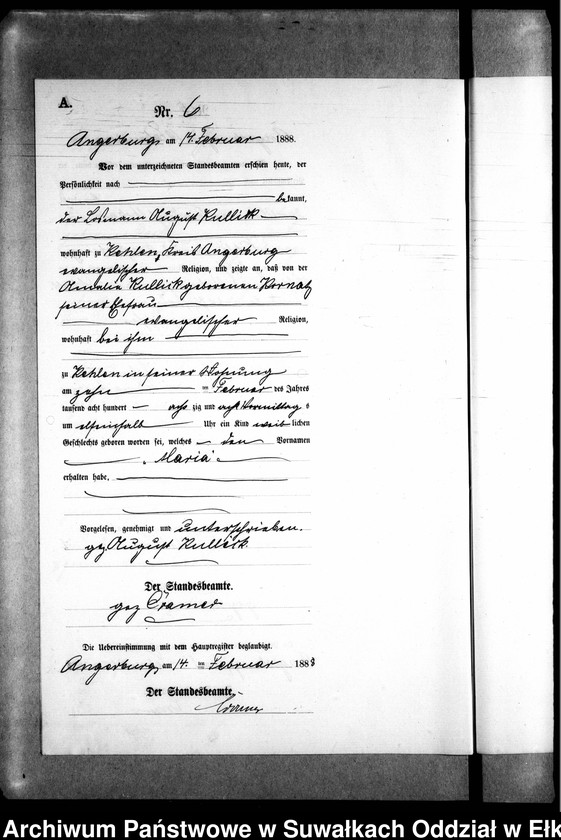 A.
Nr. 6
Angerburg am 14. Februar 1888.
Vor dem unterzeichneten Standesbeamten erschien heute, der
Persönlichkeit nach
bekannt,
der Losmann August Kullick
wohnhaft zu Kehlen, Kreis Angerburg
evangelischer Religion, und zeigte an, daß von der
Amalie Kullick geborenen Kornatz
seiner Ehefrau
evangelischer Religion,
wohnhaft bei ihm
zu Kehlen in seiner Wohnung
am zehn ten Februar des Jahres
tausend acht hundert acht zig und acht Vormittags
um elfeinhalb Uhr ein Kind weiblichen
Geschlechts geboren worden sei, welches den Vornamen
Maria
erhalten habe,
Vorgelesen, genehmigt und unterschrieben.
gez August Kullick
Der Standesbeamte.
gez Cramer
Die Uebereinstimmung mit dem Hauptregister beglaubigt.
Angerburg, am 14. ten Februar 1888
Der Standesbeamte.
Cramer
Archiwum Państwowe w Suwałkach Oddział w Ełk